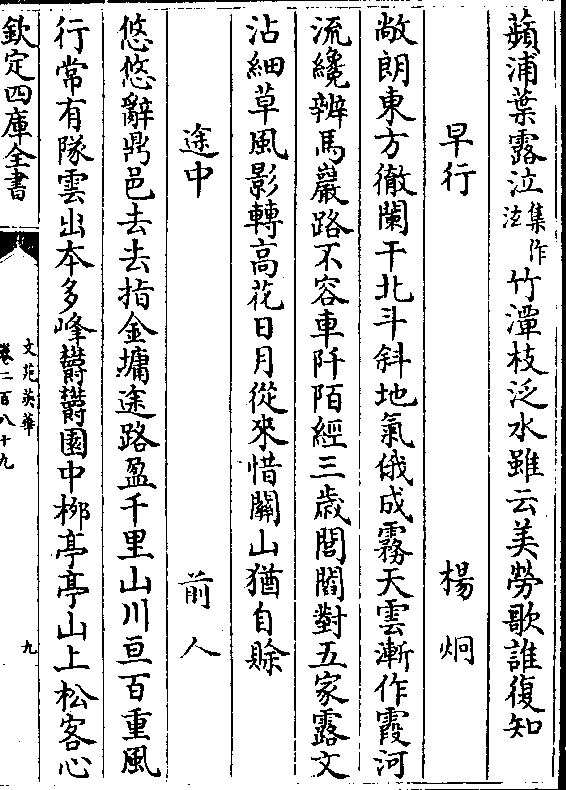 蘋浦葉露泣集作泫竹潭枝泛水雖云美勞歌誰復知
早行 楊炯
敞朗東方徹闌干北斗斜地氣俄成霧天雲漸作霞河
流纔辨馬巖路不容車阡陌經三歲閭閻對五家露文
沾細草風影轉高花日月從來惜關山猶自賒
途中 前人
悠悠辭鼎邑去去指金墉途路盈千里山川亘百重風
行常有隊雲出本多峰欝欝園中柳亭亭山上松客心
欽定四庫全書
文苑英華
卷二百八十九
九